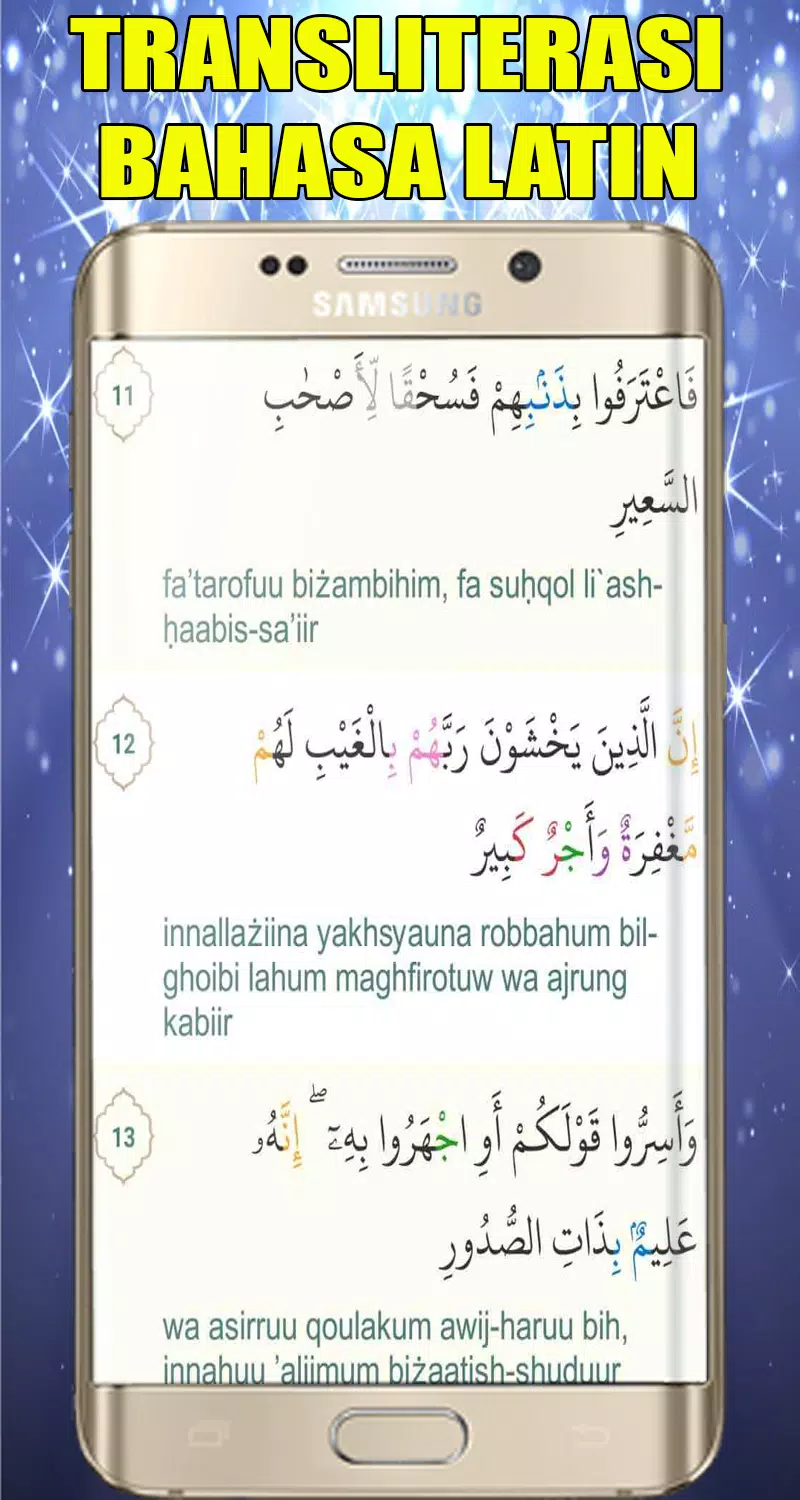 TRANSLITERASI
BAHASA LATIN
SAMSUNG
11
فَاعْتَرَفُوا بِذَنْۢبِهِمْ فَسُحْقًا لِّأَصْحٰبِ
السَّعِيرِ
fa’tarofuu biżambihim, fa suḥqol li`ash-
ḥaabis-sa’iir
12
إِنَّ الَّذِينَ يَخْشَوْنَ رَبَّهُمْ بِالْغَيْبِ لَهُمْ
مَّغْفِرَةٌ وَأَجْرٌ كَبِيرٌ
innallażiina yakhsyauna robbahum bil-
ghoibi lahum maghfirotuw wa ajrung
kabiir
13
وَأَسِرُّوا قَوْلَكُمْ أَوِ اجْهَرُوا بِهِۦٓ ۖ إِنَّهُۥ
عَلِيمٌۢ بِذَاتِ الصُّدُورِ
wa asirruu qoulakum awij-haruu bih,
innahuu ’aliimum biżaatish-shuduur